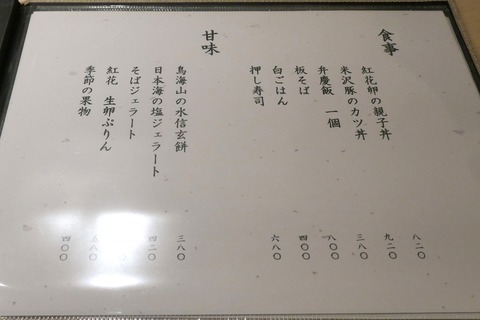 食事
紅花卵の親子丼
米沢豚のカツ丼
弁慶飯 一個
板そば
白ごはん
押し寿司
八二〇
九二〇
三八〇
八〇〇
四〇〇
六八〇
甘味
鳥海山の水信玄餅
日本海の塩ジェラート
そばジェラート
紅花 生卵ぷりん
季節の果物
三八〇
四二〇
四〇〇